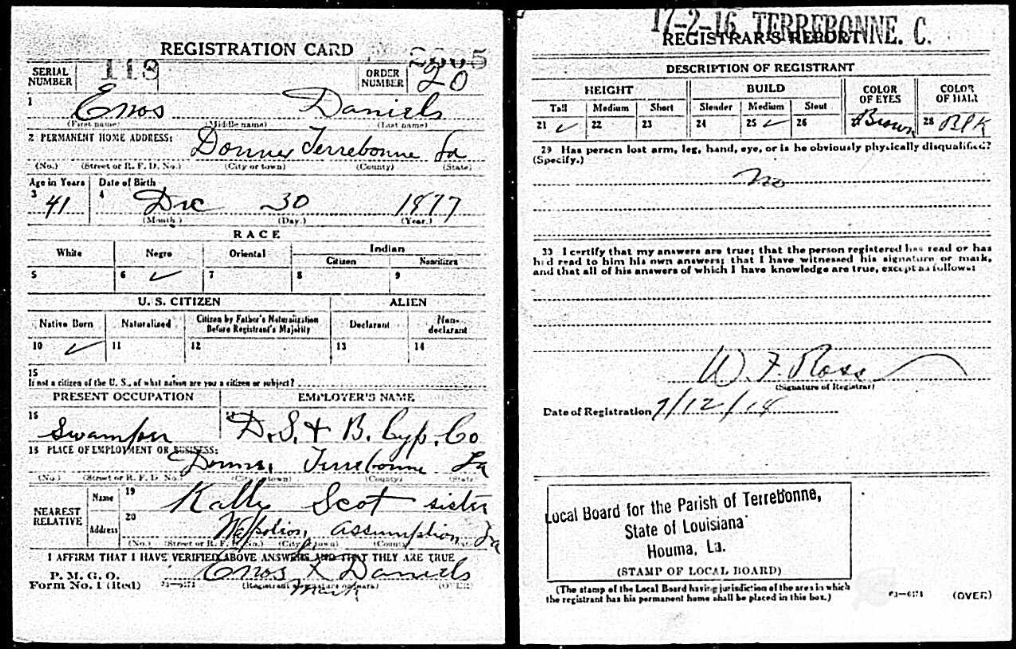 REGISTRATION CARD
SERIAL NUMBER 118 ORDER NUMBER 20
1 Enos Daniels
(First name) (Middle name) (Last name)
2 PERMANENT HOME ADDRESS: Donner Terrebonne La
(No.) (Street or R. F. D. No.) (City or town) (County) (State)
Age in Years Date of Birth
3 41 4 Dec 30 1877
(Month.) (Day.) (Year.)
RACE
White Negro Oriental Indian
Citizen Noncitizen
5 6 ✓ 7 8 9
U. S. CITIZEN ALIEN
Native Born Naturalized Citizen by Father's Naturalization Before Registrant's Majority Declarant Non-declarant
10 ✓ 11 12 13 14
15
If not a citizen of the U. S., of what nation are you a citizen or subject?
PRESENT OCCUPATION EMPLOYER'S NAME
16 Swamper 17 D.S. & B. Cyp. Co
18 PLACE OF EMPLOYMENT OR BUSINESS:
Donner Terrebonne La
(No.) (Street or R. F. D. No.) (City or town) (County) (State)
NEAREST RELATIVE Name 19 Scot sister
Address 20 Assumption La
(No.) (Street or R. F. D. No.) (City or town) (County) (State)
I AFFIRM THAT I HAVE VERIFIED ABOVE ANSWERS AND THAT THEY ARE TRUE
P. M. G. O.
Form No. 1 (Red) Enos X Daniels
mark
(Registrant's signature or mark) (OVER)
17-2-16 TERREBONNE. C.
REGISTRAR'S REPORT
DESCRIPTION OF REGISTRANT
HEIGHT BUILD COLOR OF EYES COLOR OF HAIR
Tall Medium Short Slender Medium Stout
21 ✓ 22 23 24 25 ✓ 26 Brown 28 Blk
29 Has person lost arm, leg, hand, eye, or is he obviously physically disqualified?
(Specify.)
no
30 I certify that my answers are true; that the person registered has read or has
had read to him his own answers; that I have witnessed his signature or mark,
and that all of his answers of which I have knowledge are true, except as follows:
W. F. Ross
(Signature of Registrar)
Date of Registration 9/12/18
Local Board for the Parish of Terrebonne,
State of Louisiana
Houma, La.
(STAMP OF LOCAL BOARD)
(The stamp of the Local Board having jurisdiction of the area in which
the registrant has his permanent home shall be placed in this box.)
(OVER)